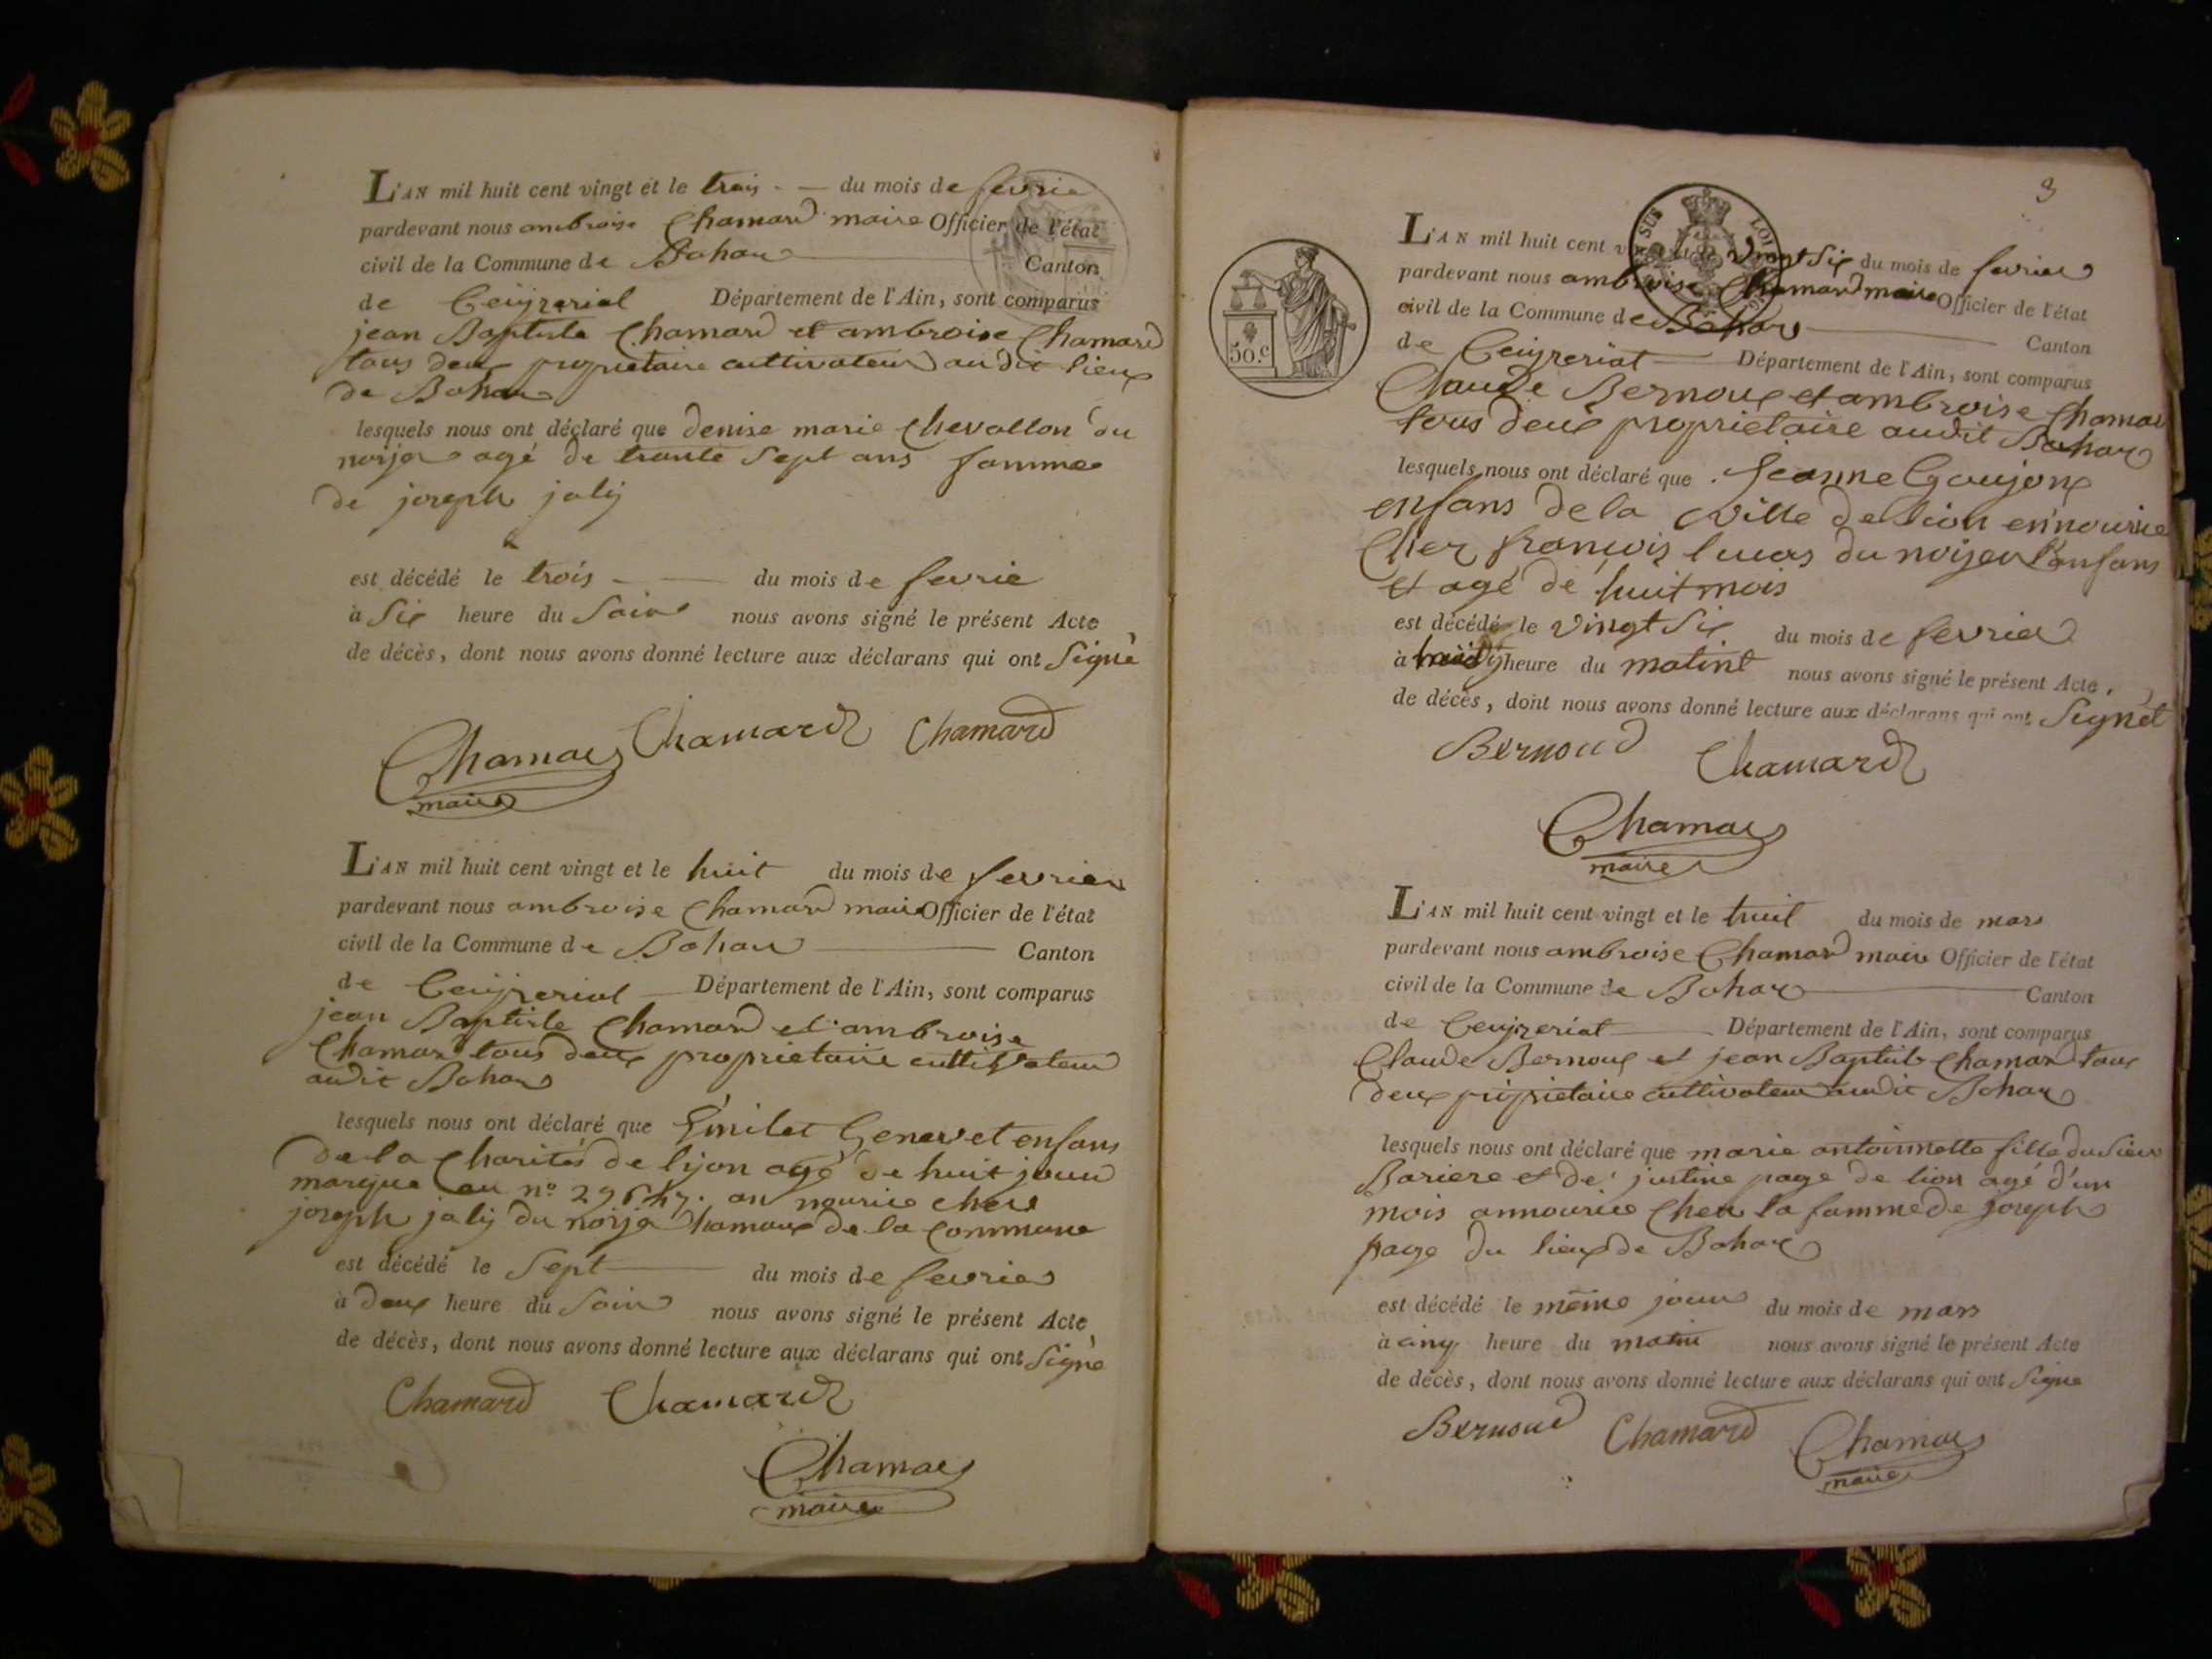 L'AN mil huit cent vingt et le trois - — du mois de fevrie
pardevant nous ambroise Chamard maire Officier de l'état
civil de la Commune de Bohan Canton
de Ceÿzerial Département de l'Ain, sont comparus
jean Baptiste Chamard et ambroise Chamard
tous deux proprietaire cultivateur au dit lieux
de Bohan
lesquels nous ont déclaré que denise marie Chevallon du
noija agé de trante Sept ans famme
de joseph jalÿ
est décédé le trois - — du mois de fevrie
à Six heure du Soir nous avons signé le présent Acte
de décès, dont nous avons donné lecture aux déclarans qui ont Signé
Chamar Chamard Chamard
maire
L'AN mil huit cent vingt et le huit du mois de fevrier
pardevant nous ambroise Chamard maire Officier de l'état
civil de la Commune de Bohan Canton
de Ceÿzerial Département de l'Ain, sont comparus
jean Baptiste Chamard et ambroise
Chamar tous deux proprietaire cultivateur
audit Bohan
lesquels nous ont déclaré que Genevet enfans
de la Charités de lÿon agé de huit jour
marque au nº an nourice cher
joseph jalÿ du noija hamaux de la Commune
est décédé le Sept du mois de fevrier
à deux heure du Soir nous avons signé le présent Acte
de décès, dont nous avons donné lecture aux déclarans qui ont Signé
Chamard Chamard
Chamar
maire
3
SUR LOI
50.c
L'AN mil huit cent vingt et le vingt Six du mois de fevrier
pardevant nous ambroise Chamard maire Officier de l'état
civil de la Commune de Bohan Canton
de Ceyzeriat Département de l'Ain, sont comparus
Claude Bernoux et ambroise Chamar
tous deux proprietaire audit Bohan
lesquels nous ont déclaré que Jeanne Goujon
enfans de la ville de lion en nourice
Cher françois lucas du noijea l'anfans
et agé de huit mois
est décédé le vingt Six du mois de fevrier
à heure du matint nous avons signé le présent Acte,
de décès, dont nous avons donné lecture aux déclarans qui ont Signét
Bernoud Chamard
Chamar
maire
L'AN mil huit cent vingt et le huit du mois de mars
pardevant nous ambroise Chamard maire Officier de l'état
civil de la Commune de Bohan Canton
de Ceyzeriat Département de l'Ain, sont comparus
Claude Bernoux et jean Baptiste Chamar tous
deux proprietaire cultivateur audit Bohan
lesquels nous ont déclaré que marie antoinnette fille du Sieur
Bariere et de justine page de lion agé d'un
mois annourice cheu la famme de joseph
page du lieux de Bohan
est décédé le même jour du mois de mars
à cinq heure du matin nous avons signé le présent Acte
de décès, dont nous avons donné lecture aux déclarans qui ont Signe
Bernoud Chamard Chamar
maire